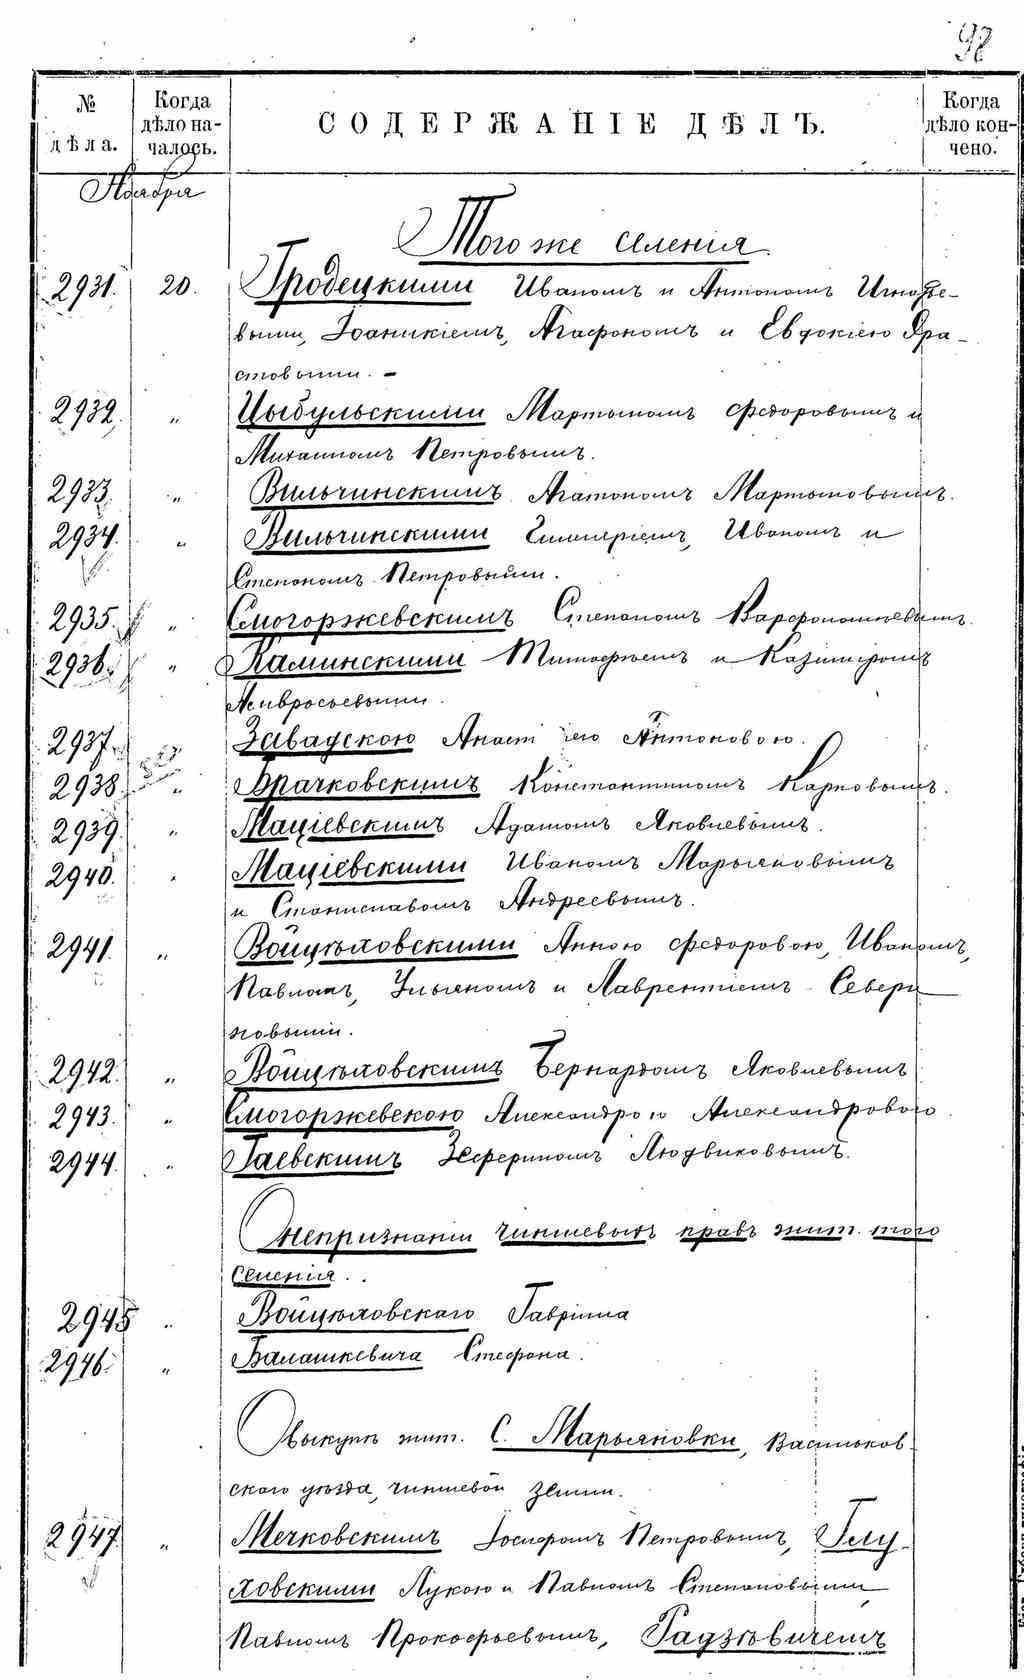 98
№ дѣла.
Когда дѣло на-чалось.
СОДЕРЖАНІЕ ДѢЛЪ.
Когда дѣло кон-чено.
Ноября
Того же селенія
2931. 20. Гродецкими Иваномъ и Антономъ Игнатье-
выми, Іоаникіемъ, Агафономъ и Евдокіею Эра-
стовыми. –
2932. „ Цыбульскими Мартыномъ Федоровымъ и
Михаиломъ Петровымъ.
2933. „ Вильчинскимъ Агатономъ Мартыновымъ.
2934. „ Вильчинскими Иваномъ и
Степаномъ Петровыми.
2935. „ Смогоржевскимъ Степаномъ Варфоломѣевымъ.
2936. „ Каминскими Тимофѣемъ и Казиміромъ
Амвросьевыми.
2937. „ Завадскою Антоновою.
2938. „ Брачковскимъ Константиномъ Карповымъ.
2939. „ Маціевскимъ Адамомъ Яковлевымъ.
2940. „ Маціевскими Иваномъ Марьяновымъ
и Станиславомъ Андреевымъ.
2941. „ Войцѣховскими Анною Федоровою, Иваномъ,
Павломъ, Ульяномъ и Лаврентіемъ Севери
новыми.
2942. „ Войцѣховскимъ Бернардомъ Яковлевымъ
2943. „ Смогоржевскою Александрою Александровою.
2944. „ Гаевскимъ Зеферипомъ Людвиковымъ.
О непризнаніи чиншевыхъ правъ жит. того
селенія..
2945 „ Войцѣховскаго Гавріила
2946. „ Балашкевича Стефана.
О выкупѣ жит. С. Марьяновки, Васильков-
скаго уѣзда, чиншевой земли.
2947. „ Мечковскимъ Іосифомъ Петровымъ, Глу-
ховскими Лукою и Павломъ Степановыми
Павломъ Прокофьевымъ, Гадзѣвичемъ